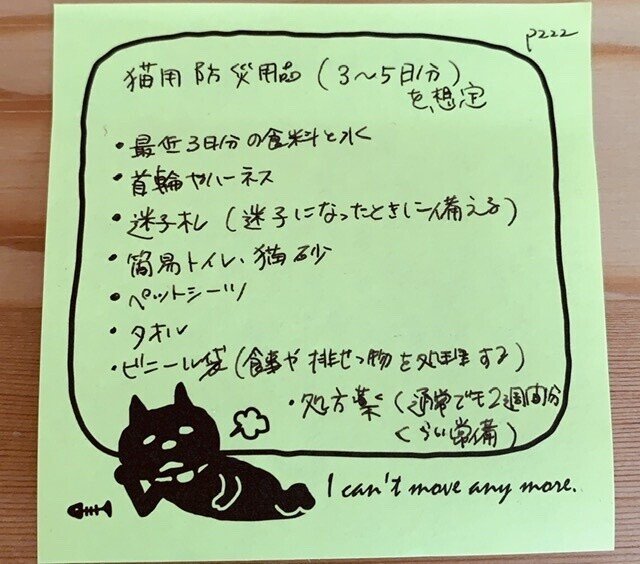 P222
猫用防災用品(3〜5日分)
を想定
・最低3日分の食料と水
・首輪やハーネス
・迷子札(迷子になったときに備える)
・簡易トイレ、猫砂
・ペットシーツ
・タオル
・ビニール袋(食事や排せつ物を処理する)
・処方薬(通常でも2週間分
くらい常備)
I can't move any more.